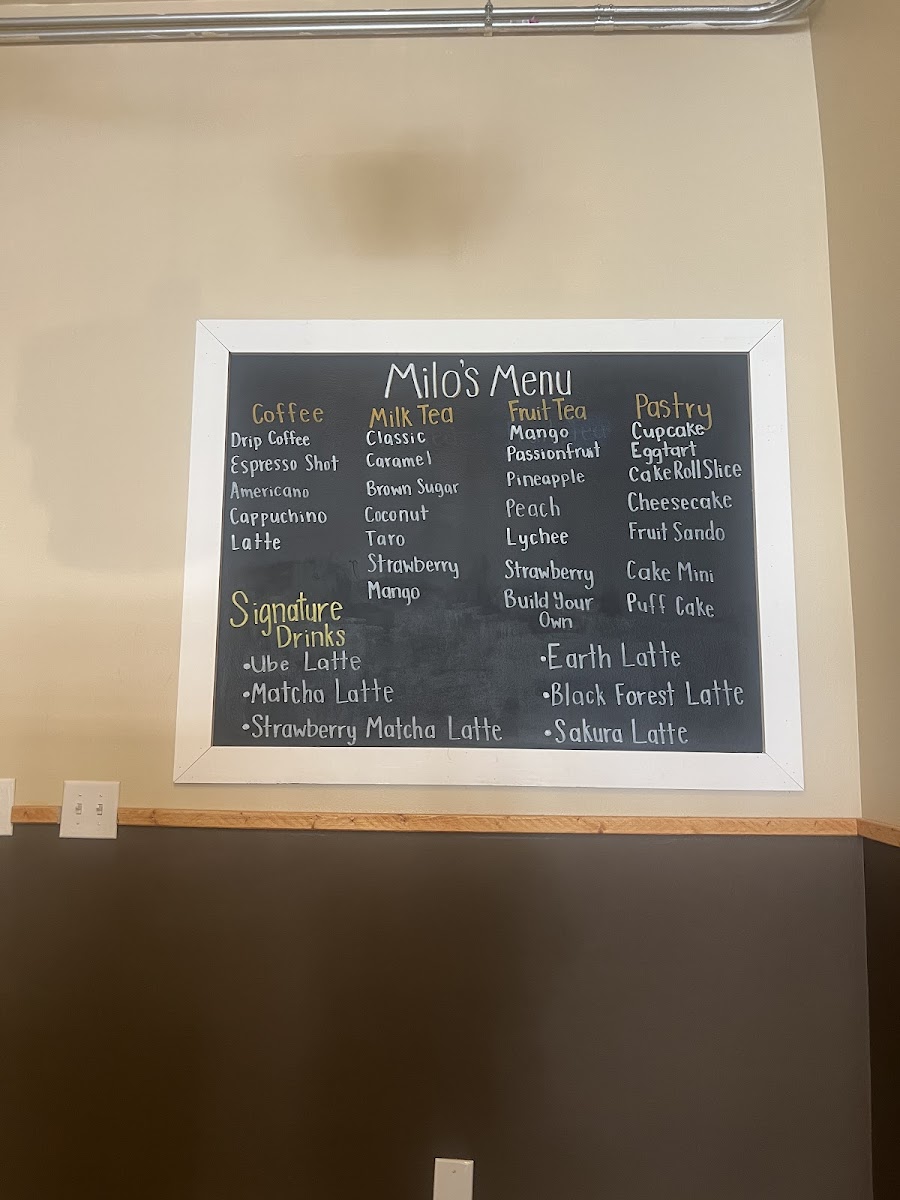 Milo's Menu
Coffee
Drip Coffee
Espresso Shot
Americano
Cappuchino
Latte
Milk Tea
Classic
Caramel
Brown Sugar
Coconut
Taro
Strawberry
Mango
Fruit Tea
Mango
Passionfruit
Pineapple
Peach
Lychee
Strawberry
Build Your
Own
Pastry
Cupcake
Eggtart
Cake Roll Slice
Cheesecake
Fruit Sando
Cake Mini
Puff Cake
Signature
Drinks
•Ube Latte
•Matcha Latte
•Strawberry Matcha Latte
•Earth Latte
•Black Forest Latte
•Sakura Latte